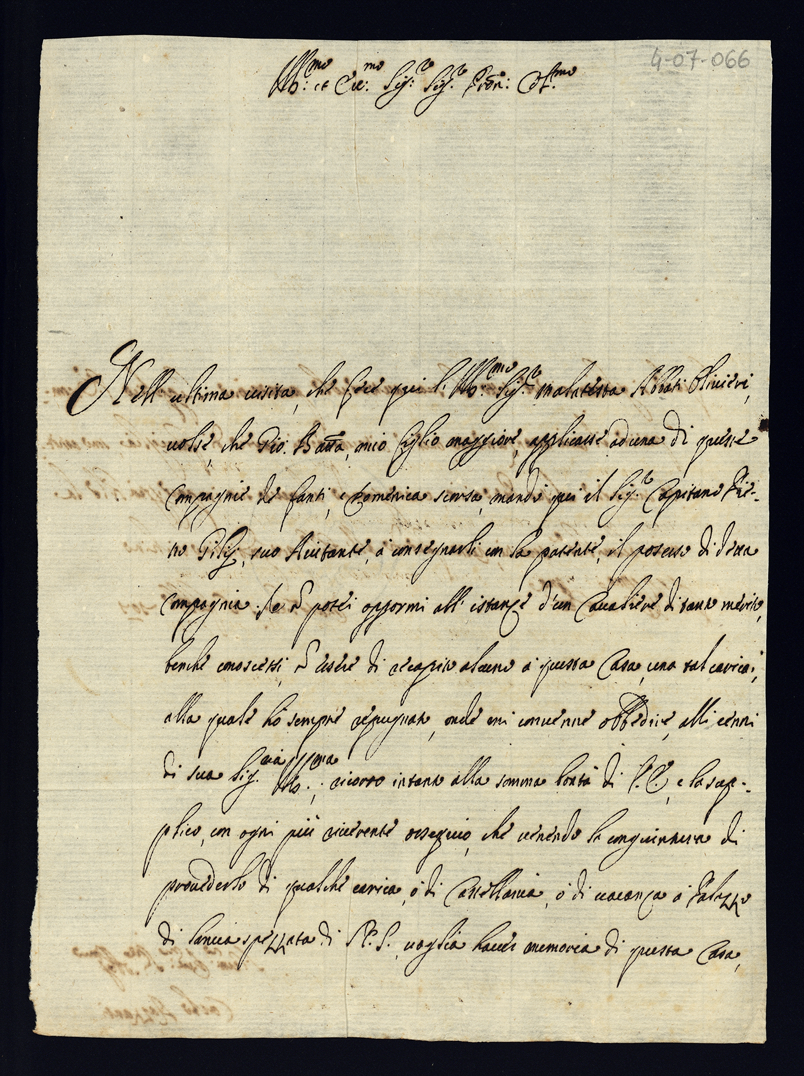 4-07-066
Ill:mo et Ecc:mo Sig:re Sig:re Pron: Col:mo
Nell ultima visita, che fece qui l'Ill:mo Sig:re Malatesta Abbati Olivieri,
volse, che Gio: Batta, mio figlio maggiore, applicasse ad una di queste
compagnie de fanti, e Domenica scorsa, mandò qui il Sig:re Capitano
suo Aiutante, a consegnarli con la patente, il possesso di detta
compagnia. Io ñ potei oppormi all' istanze d'un Cavaliere di tanto merito,
benche conoscessi, ñ essere di recapito alcuno a questa Casa, una tal carica,
alla quale hò sempre repugnato, onde mi convenne obbedire, alli cenni
di sua Sig:ria Ill:ma; ricorro intanto alla somma bontà di V. E., e la sup-
plico, con ogni più riverente ossequio, che venendo la congiuntura di
provederlo di qualche carica, ò di Castellania, ò di vacanza a Palazzo
di lancia spezzata di N. S., voglia haver memoria di questa Casa,